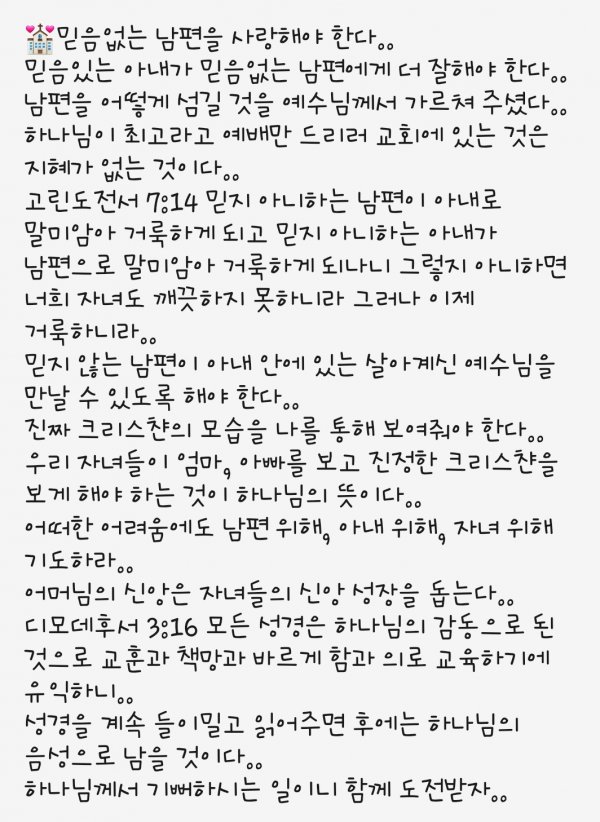 💒믿음없는 남편을 사랑해야 한다。。
믿음있는 아내가 믿음없는 남편에게 더 잘해야 한다。。
남편을 어떻게 섬길 것을 예수님께서 가르쳐 주셨다。。
하나님이 최고라고 예배만 드리러 교회에 있는 것은
지혜가 없는 것이다。。
고린도전서 7:14 믿지 아니하는 남편이 아내로
말미암아 거룩하게 되고 믿지 아니하는 아내가
남편으로 말미암아 거룩하게 되나니 그렇지 아니하면
너희 자녀도 깨끗하지 못하니라 그러나 이제
거룩하니라。。
믿지 않는 남편이 아내 안에 있는 살아계신 예수님을
만날 수 있도록 해야 한다。。
진짜 크리스챤의 모습을 나를 통해 보여줘야 한다。。
우리 자녀들이 엄마, 아빠를 보고 진정한 크리스챤을
보게 해야 하는 것이 하나님의 뜻이다。。
어떠한 어려움에도 남편 위해, 아내 위해, 자녀 위해
기도하라。。
어머님의 신앙은 자녀들의 신앙 성장을 돕는다。。
디모데후서 3:16 모든 성경은 하나님의 감동으로 된
것으로 교훈과 책망과 바르게 함과 의로 교육하기에
유익하니。。
성경을 계속 들이밀고 읽어주면 후에는 하나님의
음성으로 남을 것이다。。
하나님께서 기뻐하시는 일이니 함께 도전받자。。